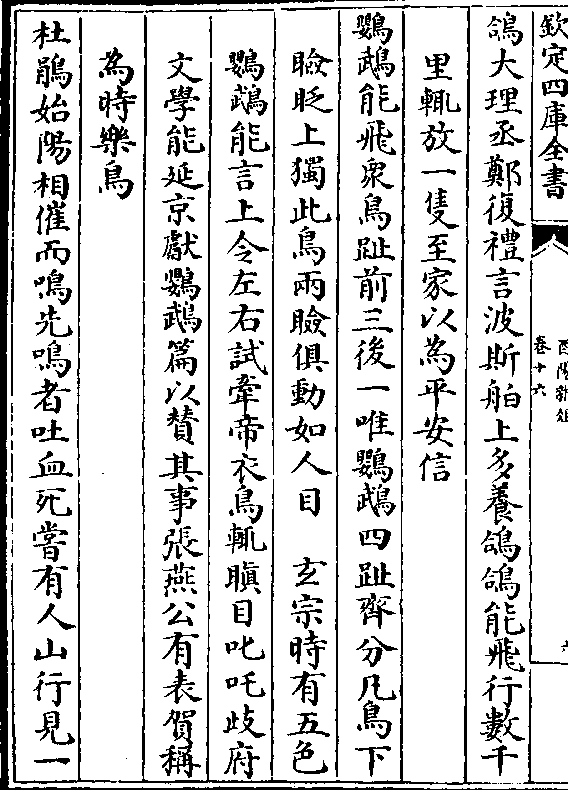 欽定四庫全書
酉陽雜俎
卷十六
六
鴿大理丞鄭復禮言波斯舶上多養鴿鴿能飛行數千
里輒放一隻至家以為平安信
鸚鵡能飛衆鳥趾前三後一唯鸚鵡四趾齊分凡鳥下
瞼眨上獨此鳥兩瞼俱動如人目　玄宗時有五色
鸚鵡能言上令左右試牽帝衣鳥輒瞋目叱吒歧府
文學能延京獻鸚鵡篇以贊其事張燕公有表賀稱
為時樂鳥
杜鵑始陽相催而鳴先鳴者吐血死嘗有人山行見一